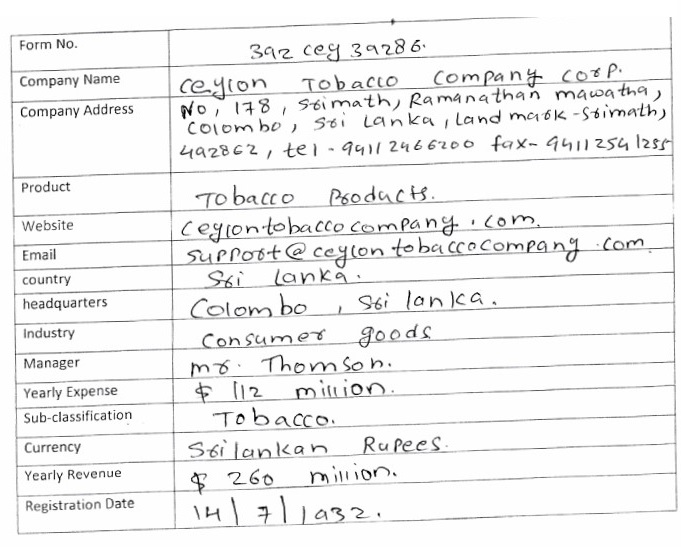 Form No. 392 ceg 39286.
Company Name Ceylon Tobacco Company Corp.
Company Address No, 178, Srimath, Ramanathan mawatha,
Colombo, Sri Lanka, land mark - Srimath,
492862, tel - 94112466200 fax - 94112541255
Product Tobacco Products.
Website Ceylontobaccocompang.com.
Email support@ceylontobaccocompang.com.
country Sri lanka.
headquarters Colombo, Sri lanka.
Industry Consumer goods
Manager mr. Thomson.
Yearly Expense $ 112 million.
Sub-classification Tobacco.
Currency Srilankan Rupees.
Yearly Revenue $ 260 million.
Registration Date 14/7/1932.